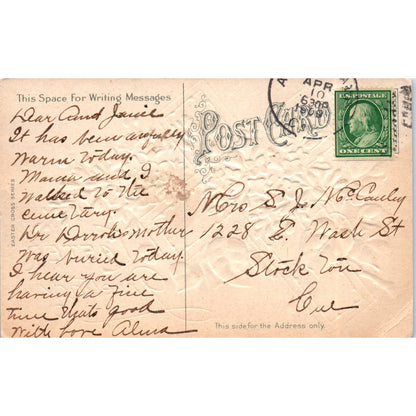 This Space For Writing Messages
Dear Aunt Janie
It has been awfully
warm today.
Mama and I
walked to the
cemetary.
Dr Dorrohs mother
was buried today.
I hear you are
having a fine
time thats good
With love Alma
EASTER CROSS SERIES
POST CARD
APR
10
630P
1909
U.S. POSTAGE
ONE CENT
Mrs S J McCauley
1228 E. Wash St
Stockton
Cal
This side for the Address only.